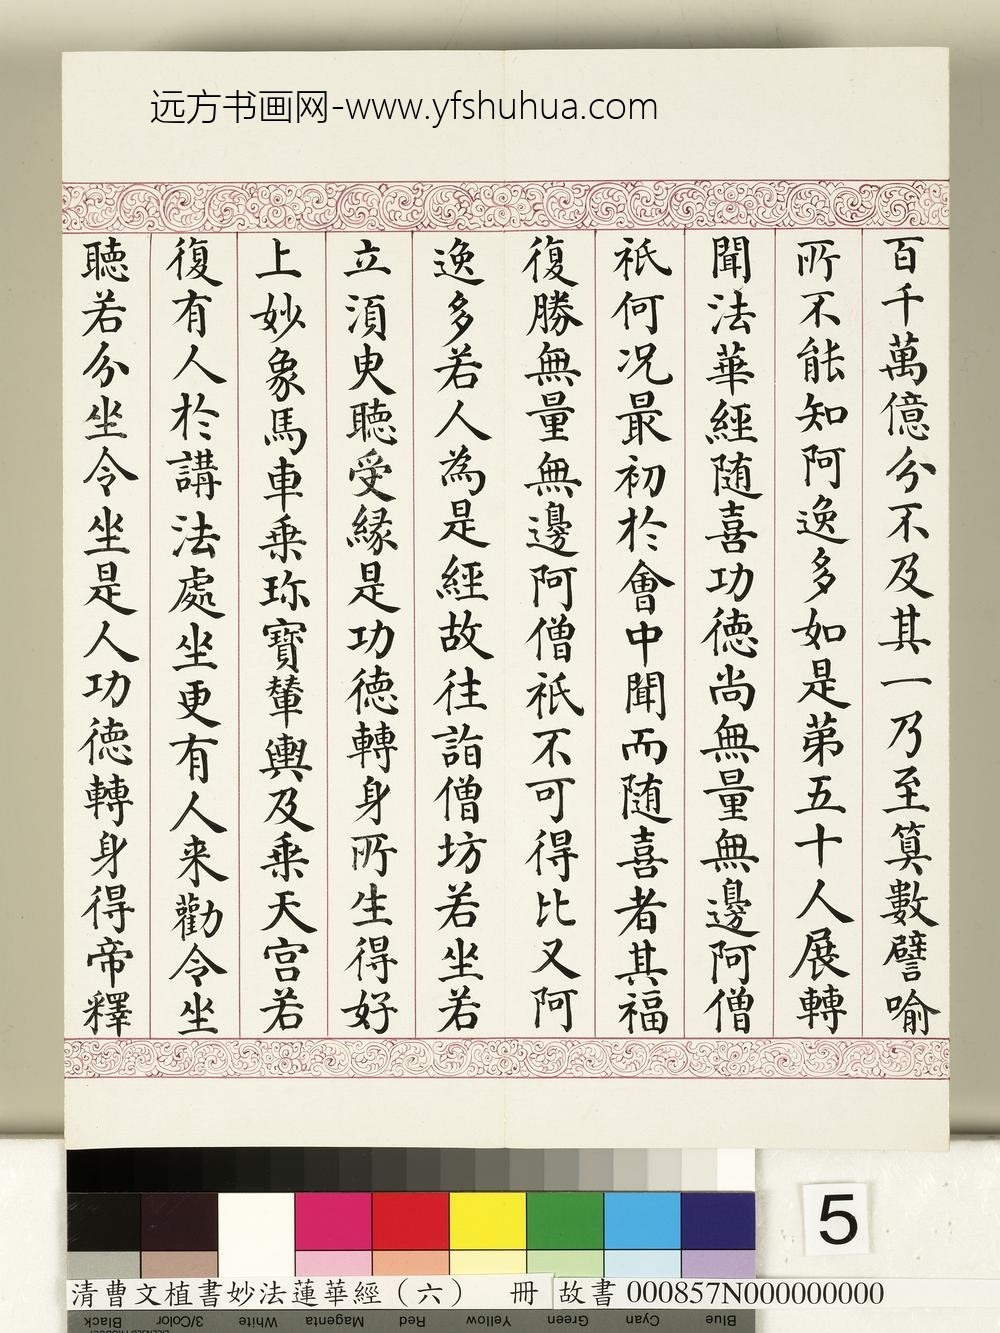 远方书画网-www.yfshuhua.com
百千萬億分不及其一乃至算數譬喻
所不能知阿逸多如是第五十人展轉
聞法華經隨喜功德尚無量無邊阿僧
祇何况最初於會中聞而隨喜者其福
復勝無量無邊阿僧祇不可得比又阿
逸多若人為是經故往詣僧坊若坐若
立須臾聽受緣是功德轉身所生得好
上妙象馬車乗珎寶輦輿及乗天宫若
復有人於講法處坐更有人来勸令坐
聴若分坐令坐是人功德轉身得帝釋
5
清曹文植書妙法蓮華經（六） 冊 故書 000857N000000000
Black 3/Color White Magenta Red Yellow Green Cyan Blue